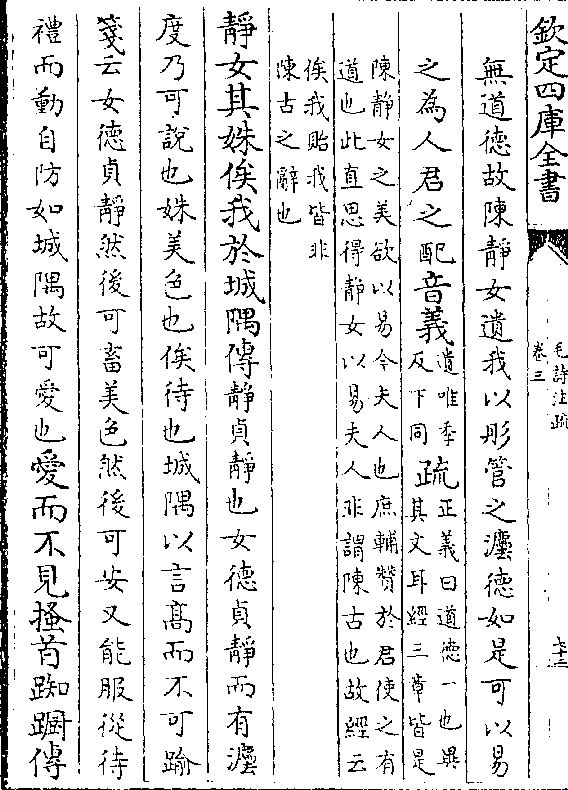 欽定四庫全書
毛詩注疏
卷三
無道德故陳靜女遺我以彤管之灋德如是可以易
之為人君之配音義遺唯季反下同疏正義曰道德一也異其文耳經三章皆是
陳靜女之美欲以易今夫人也庶輔贊於君使之有
道也此直思得靜女以易夫人非謂陳古也故經云
俟我貽我皆非
陳古之辭也
靜女其姝俟我於城隅傳靜貞靜也女德貞靜而有灋
度乃可說也姝美色也俟待也城隅以言髙而不可踰
箋云女德貞靜然後可畜美色然後可安又能服從待
禮而動自防如城隅故可愛也愛而不見搔首踟蹰傳